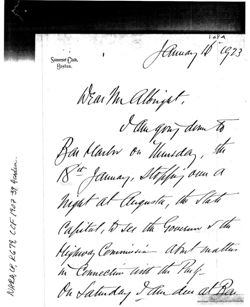 1 of 2
January 16 1923
Somerset Club,
Boston.
Dear Mr Albright,
I am going down to
Bar Harbor on Thursday, the
18th January, stopping over a
night at Augusta, the State
Capital, to see the Governor &
Highway Commission about matters
in connection with the Park.
On Saturday I am due at Bar